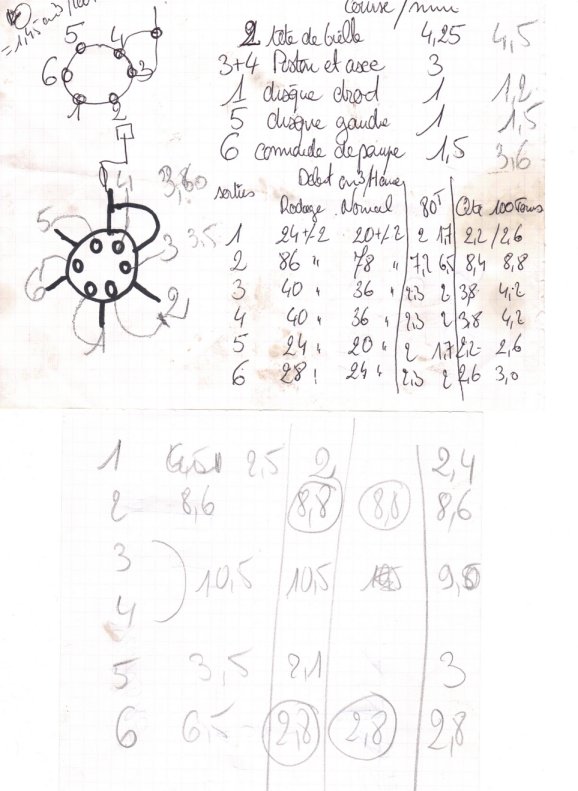 = 1,45 cm3/100T
course/mm
2 tête de bielle 4,25 4,5
3+4 Piston et axe 3
1 disque droit 1 1,2
5 disque gauche 1 1,5
6 commande de pompe 1,5 3,6
5 4 3 6 1 2
Debit cm3/Heure
sorties Rodage Normal 80T Côte 100Tours
1 24+/-2 20+/-2 2 1,7 2,2/2,6
2 86 " 78 " 7,2 6,5 8,4 8,8
3 40 " 36 " 2,3 2 3,8 4,2
4 40 " 36 " 2,3 2 3,8 4,2
5 24 " 20 " 2 1,7 2,2 2,6
6 28 " 24 " 2,3 2 2,6 3,0
4 3,80
5 3 3,5
6 2
1
1 2,5 2 2,4
2 8,6 8,8 8,8 8,6
3
10,5 10,5
4
5 3,5 2,1 3
6 6,5 2,8 2,8 2,8